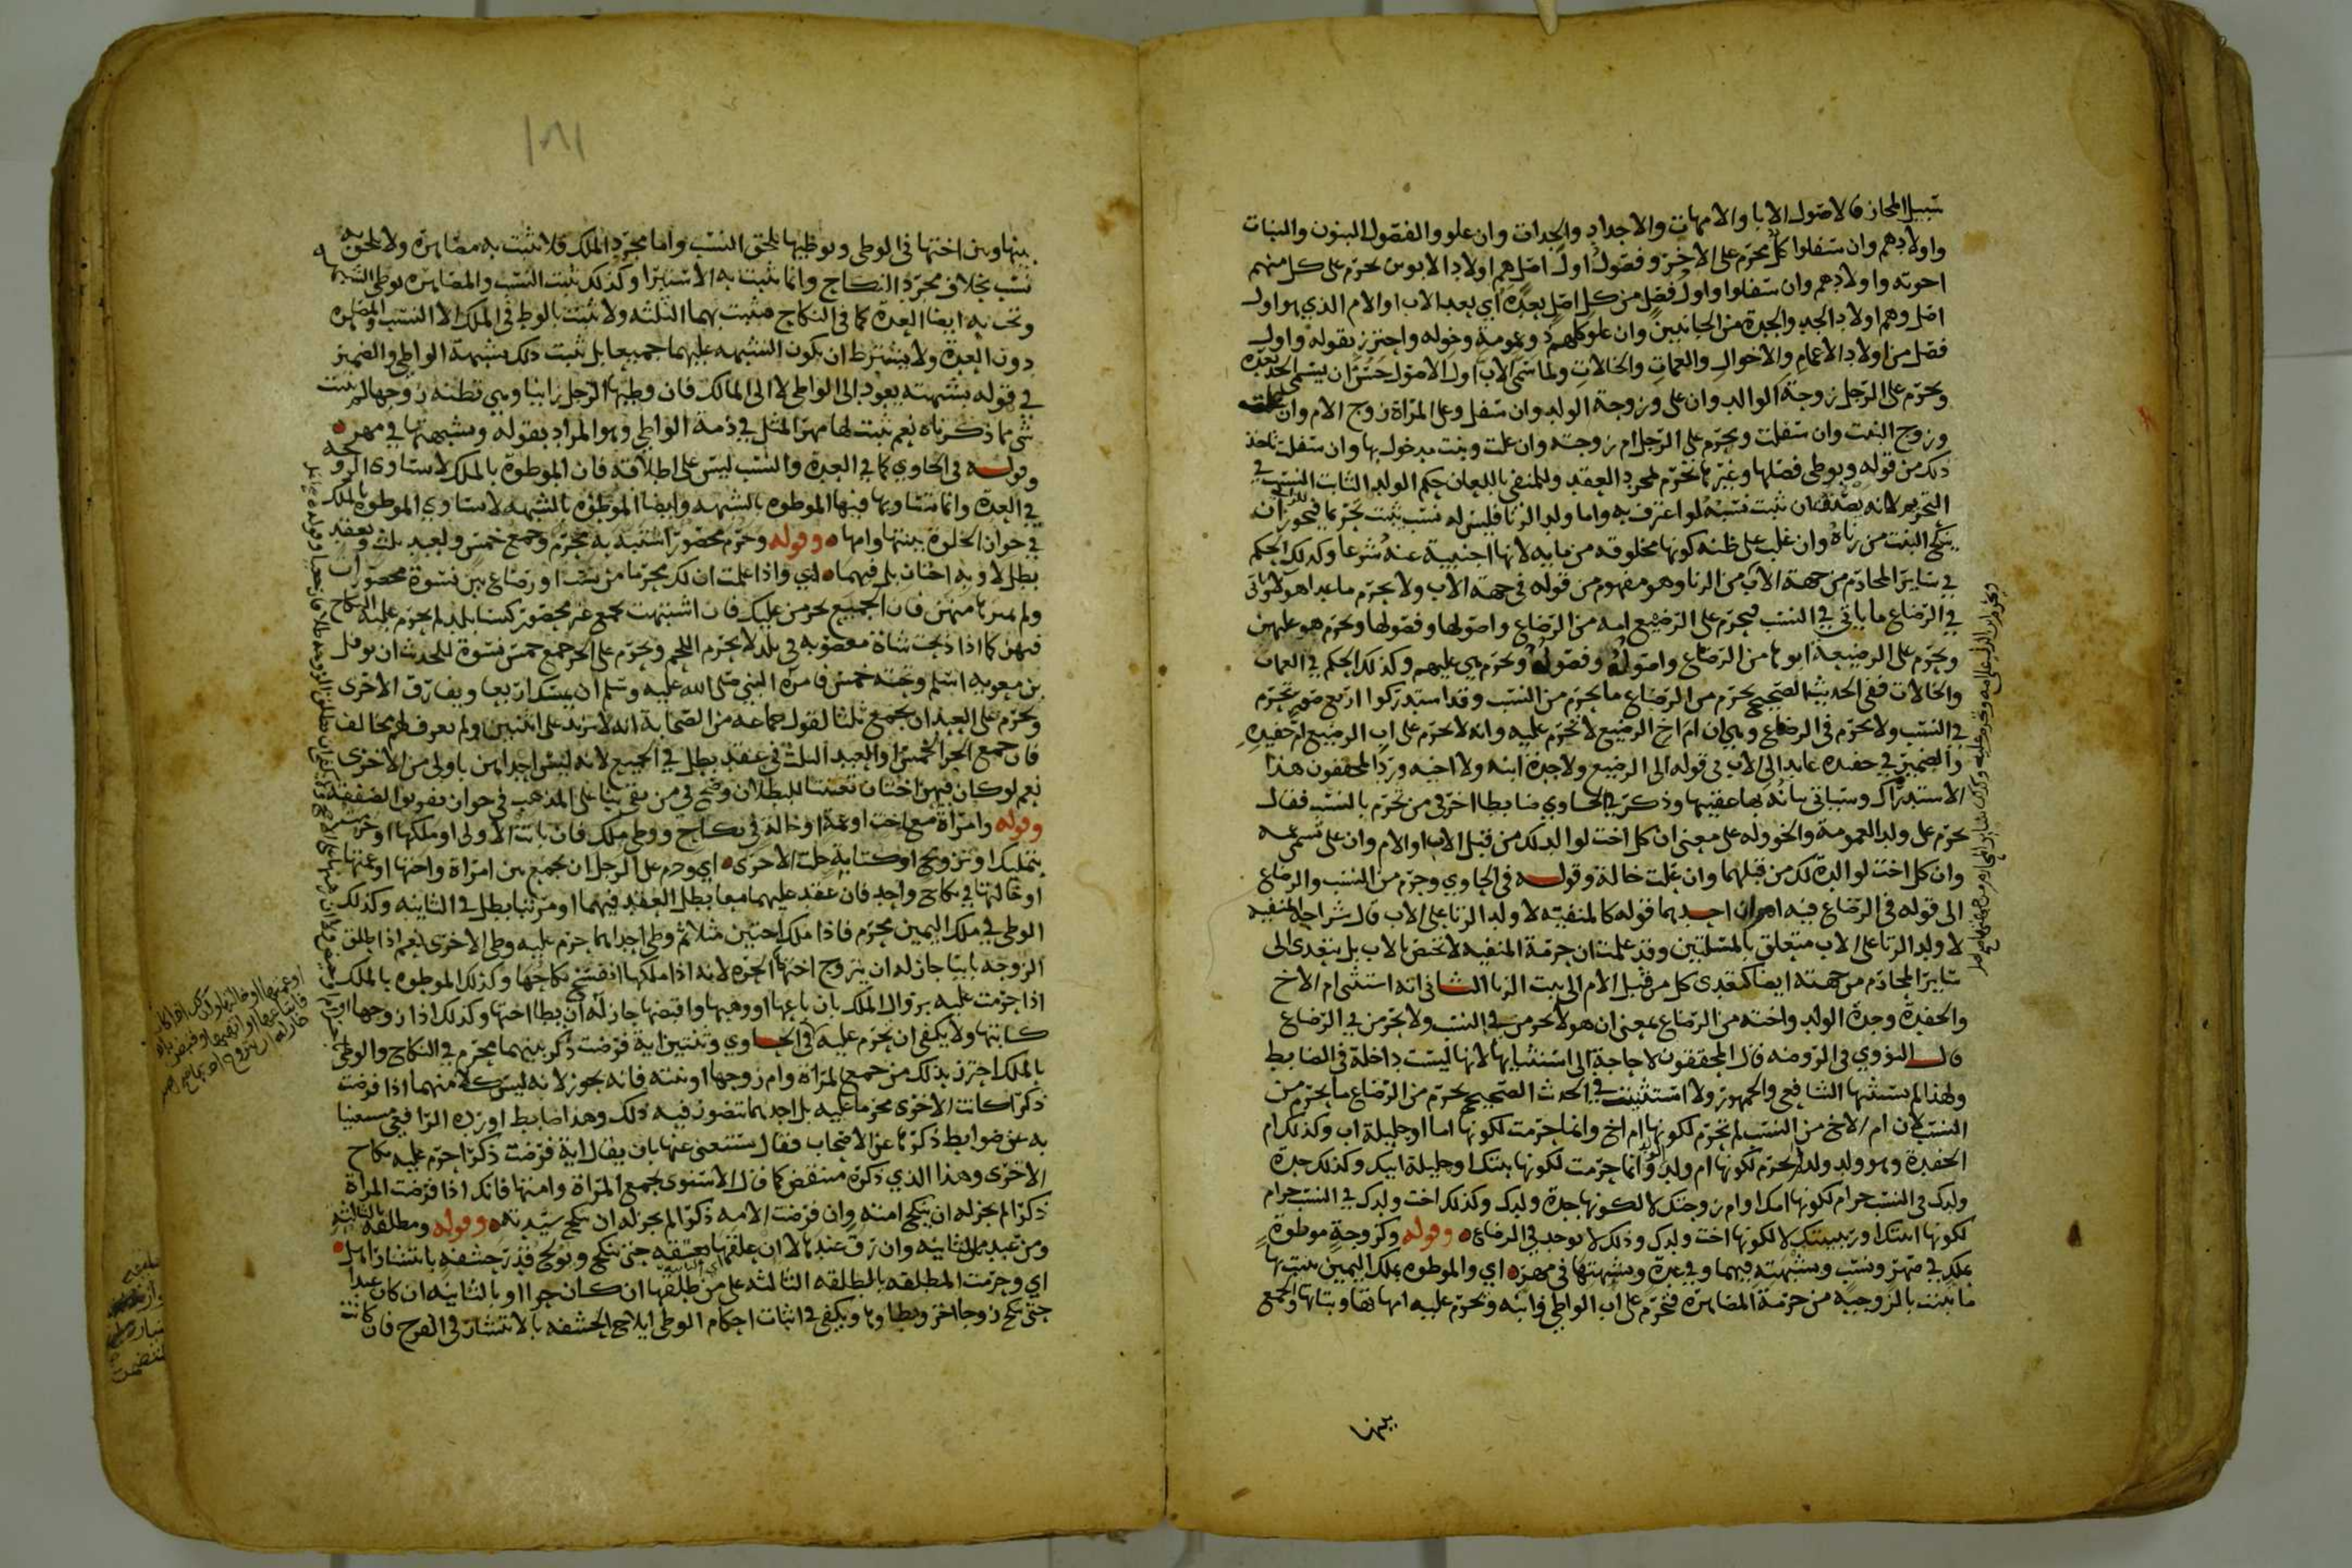 سبيل المجاز فالاصول الابا والامهات والاجداد والجدات وان علوو الفصول البنون والبنات
واولادهم وان سفلوا كل محرم على الاخر وفصول اول اصل هم اولاد الابوين تحرم على كل منهم
اخوته واولادهم وان سفلوا واول فصل من كل اصل بعده اي بعد الاب او الام الذي هو اول
اصل وهم اولاد الجد والجدة من الجانبين وان علو كلهم وعمومة وخوله واحترز بقوله واول
فصل من اولاد الاعمام والاخوال والعمات والخالات ولما سمى الاب اول الاصول حسن ان يسمى الجد بعده
وتحرم على الرجل زوجة الوالد وان علا وزوجة الولد وان سفل وعلى المراة زوج الام وان علت
وزوج البنت وان سفلت وتحرم على الرجل ام زوجته وان علت وبنت مدخول بها وان سفلت ناخذ
ذلك من قوله وبوطي فصلها وغيرها تحرم لمجرد العقد وللمنفي باللعان حكم الولد الثابت النسب في
التحريم لانه يصدق ان ثبت نسبه لو اعترف به واما ولد الزنا فليس له نسب يثبت تحريما فيجوز ان
ينكح البنت من زناه وان غلب على ظنه كونها مخلوقه من مايه لانها اجنبية عنه شرعا وكذلك الحكم
في ساير المحارم من جهة الاب من الزنا وهو مفهوم من قوله في جهة الاب ولا يحرم ماعدا هولا ياتى
في الرضاع ما ياتي في النسب فيحرم على الرضيع امه من الرضاع واصولها وفصولها وتحرم هو عليهن
وتحرم على الرضيعة ابوها من الرضاع واصوله وفصوله وتحرم هي عليهم وكذلك الحكم في العمات
والخالات ففي الحديث الصحيح يحرم من الرضاع ما يحرم من النسب وقد استدركوا اربع صور تحرم
في النسب ولا تحرم في الرضاع وهي ان ام اخ الرضيع لا تحرم عليه وانه لا تحرم على اب الرضيع ام حفيده
والضمير في حفيده عايد الى الاب في قوله الى الرضيع ولا جدة ابنه ولا اخته ورد المحققون هذا
الاستدراك وسياتي بيانه بها عقيبها وذكر في الحاوي ضابطا اخر في من تحرم بالنسب فقال
تحرم على ولد العمومة والخووله على معنى ان كل اخت لوالدك من قبل الاب او الام وان على تسمى عمه
وان كل اخت لوالدة لك من قبلهما وان علت خالة وقوله في الحاوي وحرم من النسب والرضاع
الى قوله في الرضاع فيه امران احدهما قوله كالمنفيه لا ولد الزنا على الاب قال شراحه المنفيه
لا ولد الزنا على الاب متعلق بالمسلتين وقد علمت ان حرمة المنفيه لا تختص بالاب بل يتعدى الى
ساير المحارم من جهته ايضا كتعدى كل من قبل الام الى بيت الزنا الثاني انه استثنى ام الاخ
والحفدة وجدة الولد واخته من الرضاع بمعنى ان هولا تحرمن في النسب ولا تحرمن في الرضاع
قال النووي في الروضه قال المحققون لا حاجة الى استثنايها لانها ليست داخلة في الضابط
ولهذا لم يستثنها الشافعي والجمهور ولا استثنيت في الحديث الصحيح يحرم من الرضاع ما يحرم من
النسب لان ام الاخ من النسب لم تحرم لكونها ام اخ وانما حرمت لكونها اما او حليلة اب وكذلك ام
الحفيدة وهو ولد ولد لم تحرم لكونها ام ولد الولد وانما حرمت لكونها بنتك او حليلة ابنك وكذلك جدة
ولدك في النسب حرام لكونها امك او ام زوجتك لا لكونها جدة ولدك وكذلك اخت ولدك في النسب حرام
لكونها ابنتك او ربيبتك لا لكونها اخت ولدك وذلك لا يوجد في الرضاع وقوله وكزوجة موطوة
بملك في صهر ونسب وبشبهته فيهما وفي عدة وبشبهتها في مهر اي والموطوه بملك اليمين يثبت بها
ما يثبت بالزوجيه من حرمة المصاهرة فتحرم على اب الواطي وابنه وتحرم عليه امهاتها وبناتها والجمع
بينها
بينها وبين اختها في الوطي وبوطيها يلحق النسب واما مجرد الملك فلا يثبت به مصاهرة ولا يلحق به
نسب بخلاف مجرد النكاح وانما يثبت به الاستبرا وكذلك يثبت النسب والمصاهره بوطي الشبهه
وتجب به ايضا العدة كما في النكاح فيثبت بهما الثلثه ولا يثبت بالوطي في الملك الا النسب والمصاهره
دون العدة ولا يشترط ان يكون الشبهه عليهما جميعا بل يثبت ذلك بشبهة الواطي والضمير
في قوله بشبهته يعود الى الواطي لا الى المالك فان وطيها الرجل زانيا وهي تظنه زوجها لم يثبت
شي مما ذكرناه نعم يثبت لها مهر المثل في ذمة الواطي وهو المراد بقوله وبشبهتها في مهر
وقوله في الحاوي كما في العدة والنسب ليس على اطلاقه فان الموطوة بالملك لا تساوى الزوجه
في العدة وانما تساويها فيها الموطوه بالشبهه وايضا الموطوه بالشبهه لا تساوي الموطوه بالملك
في جواز الخلوة ببنتها وامها وقوله وحرم محصور اشتبه به محرم وجمع خمس ولعبد ثلث وبعقد
بطل لا وبه اختان بل فيهما اي واذا علمت ان لك محرما من نسب او رضاع بين نسوة محصورات
ولم تميزها منهن فان الجميع تحرمن عليك فان اشتبهت بجمع غير محصور كنسا بلد لم تحرم عليه النكاح
فيهن كما اذا ذبحت شاة مغصوبه في بلد لا تحرم اللحم وتحرم على الحر جمع خمس نسوة للحديث ان نوفل
بن معويه اسلم وتحته خمس فامره النبي صلى الله عليه وسلم ان يمسك اربعا ويفارق الاخرى
وتحرم على العبد ان يجمع ثلثا لقول جماعه من الصحابة انه لا يزيد على اثنتين ولم يعرف لهم مخالف
فان جمع الحر الخمس او العبد الثلث في عقد بطل في الجميع لانه ليس احداهن باولى من الاخرى
نعم لو كان فيهن اختان تعينتا للبطلان وصح في من بقى بنا على المذهب في جواز تفريق الصفقه
وقوله وامراة مع اخت او عمة او خالة في نكاح ووطي ملك فان بانت الاولى او ملكها او حرمت
بتمليك او تزويج او كتابة حلت الاخرى اي وحرم على الرجل ان يجمع بين امراة واختها او عمتها
او خالتها في نكاح واحد فان عقد عليهما معا بطل العقد فيهما او مرتبا بطل في الثانيه وكذلك
الوطي في ملك اليمين محرم فاذا ملك اختين مثلا ثم وطي احداهما حرم عليه وطي الاخرى نعم اذا طلق
الزوجه باينا جاز له ان يتزوج اختها الحرة لانه اذا ملكها انفسخ نكاحها وكذلك الموطوه بالملك
اذا حرمت عليه بزوال الملك بان باعها او وهبها واقبضها جاز له ان يطا اختها وكذلك اذا زوجها او
كاتبها ولا يكفي ان تحرم عليه في الحاوي وثنتين اية فرضت ذكر بينهما محرم في النكاح والوطي
بالملك احترز بذلك من جمع المراة وام زوجها او بنته فانه يجوز لانه ليس كلا منهما اذا فرضت
ذكرا كانت الاخرى محرما عليه بل احدهما تتصور فيه ذلك وهذا ضابط اورده الرافعي مستغنيا
به عن ضوابط ذكرها عن الاصحاب فقال يستغنى عنها بان يقال اية فرضت ذكرا حرم عليه نكاح
الاخرى وهذا الذي ذكره منتقض كما قال الاسنوى بجمع المراة وامتها فانك اذا فرضت المراة
ذكرا لم يجز له ان ينكح امته وان فرضت الامه ذكرا لم يجز له ان ينكح سيدته وقوله ومطلقه بالثلثه
ومن عبد بالثانيه وان رق عندها لا ان علقها بعتقه حتى تنكح ويولج قدر حشفه بانتشار اهل
اي وحرمت المطلقه بالطلقه الثالثه على من طلقها ان كان حرا او بالثانيه ان كان عبدا
حتى تنكح زوجا اخر ويطاوها ويكفي في اثبات احكام الوطي ايلاج الحشفه بالانتشار في الفرج فان كانت